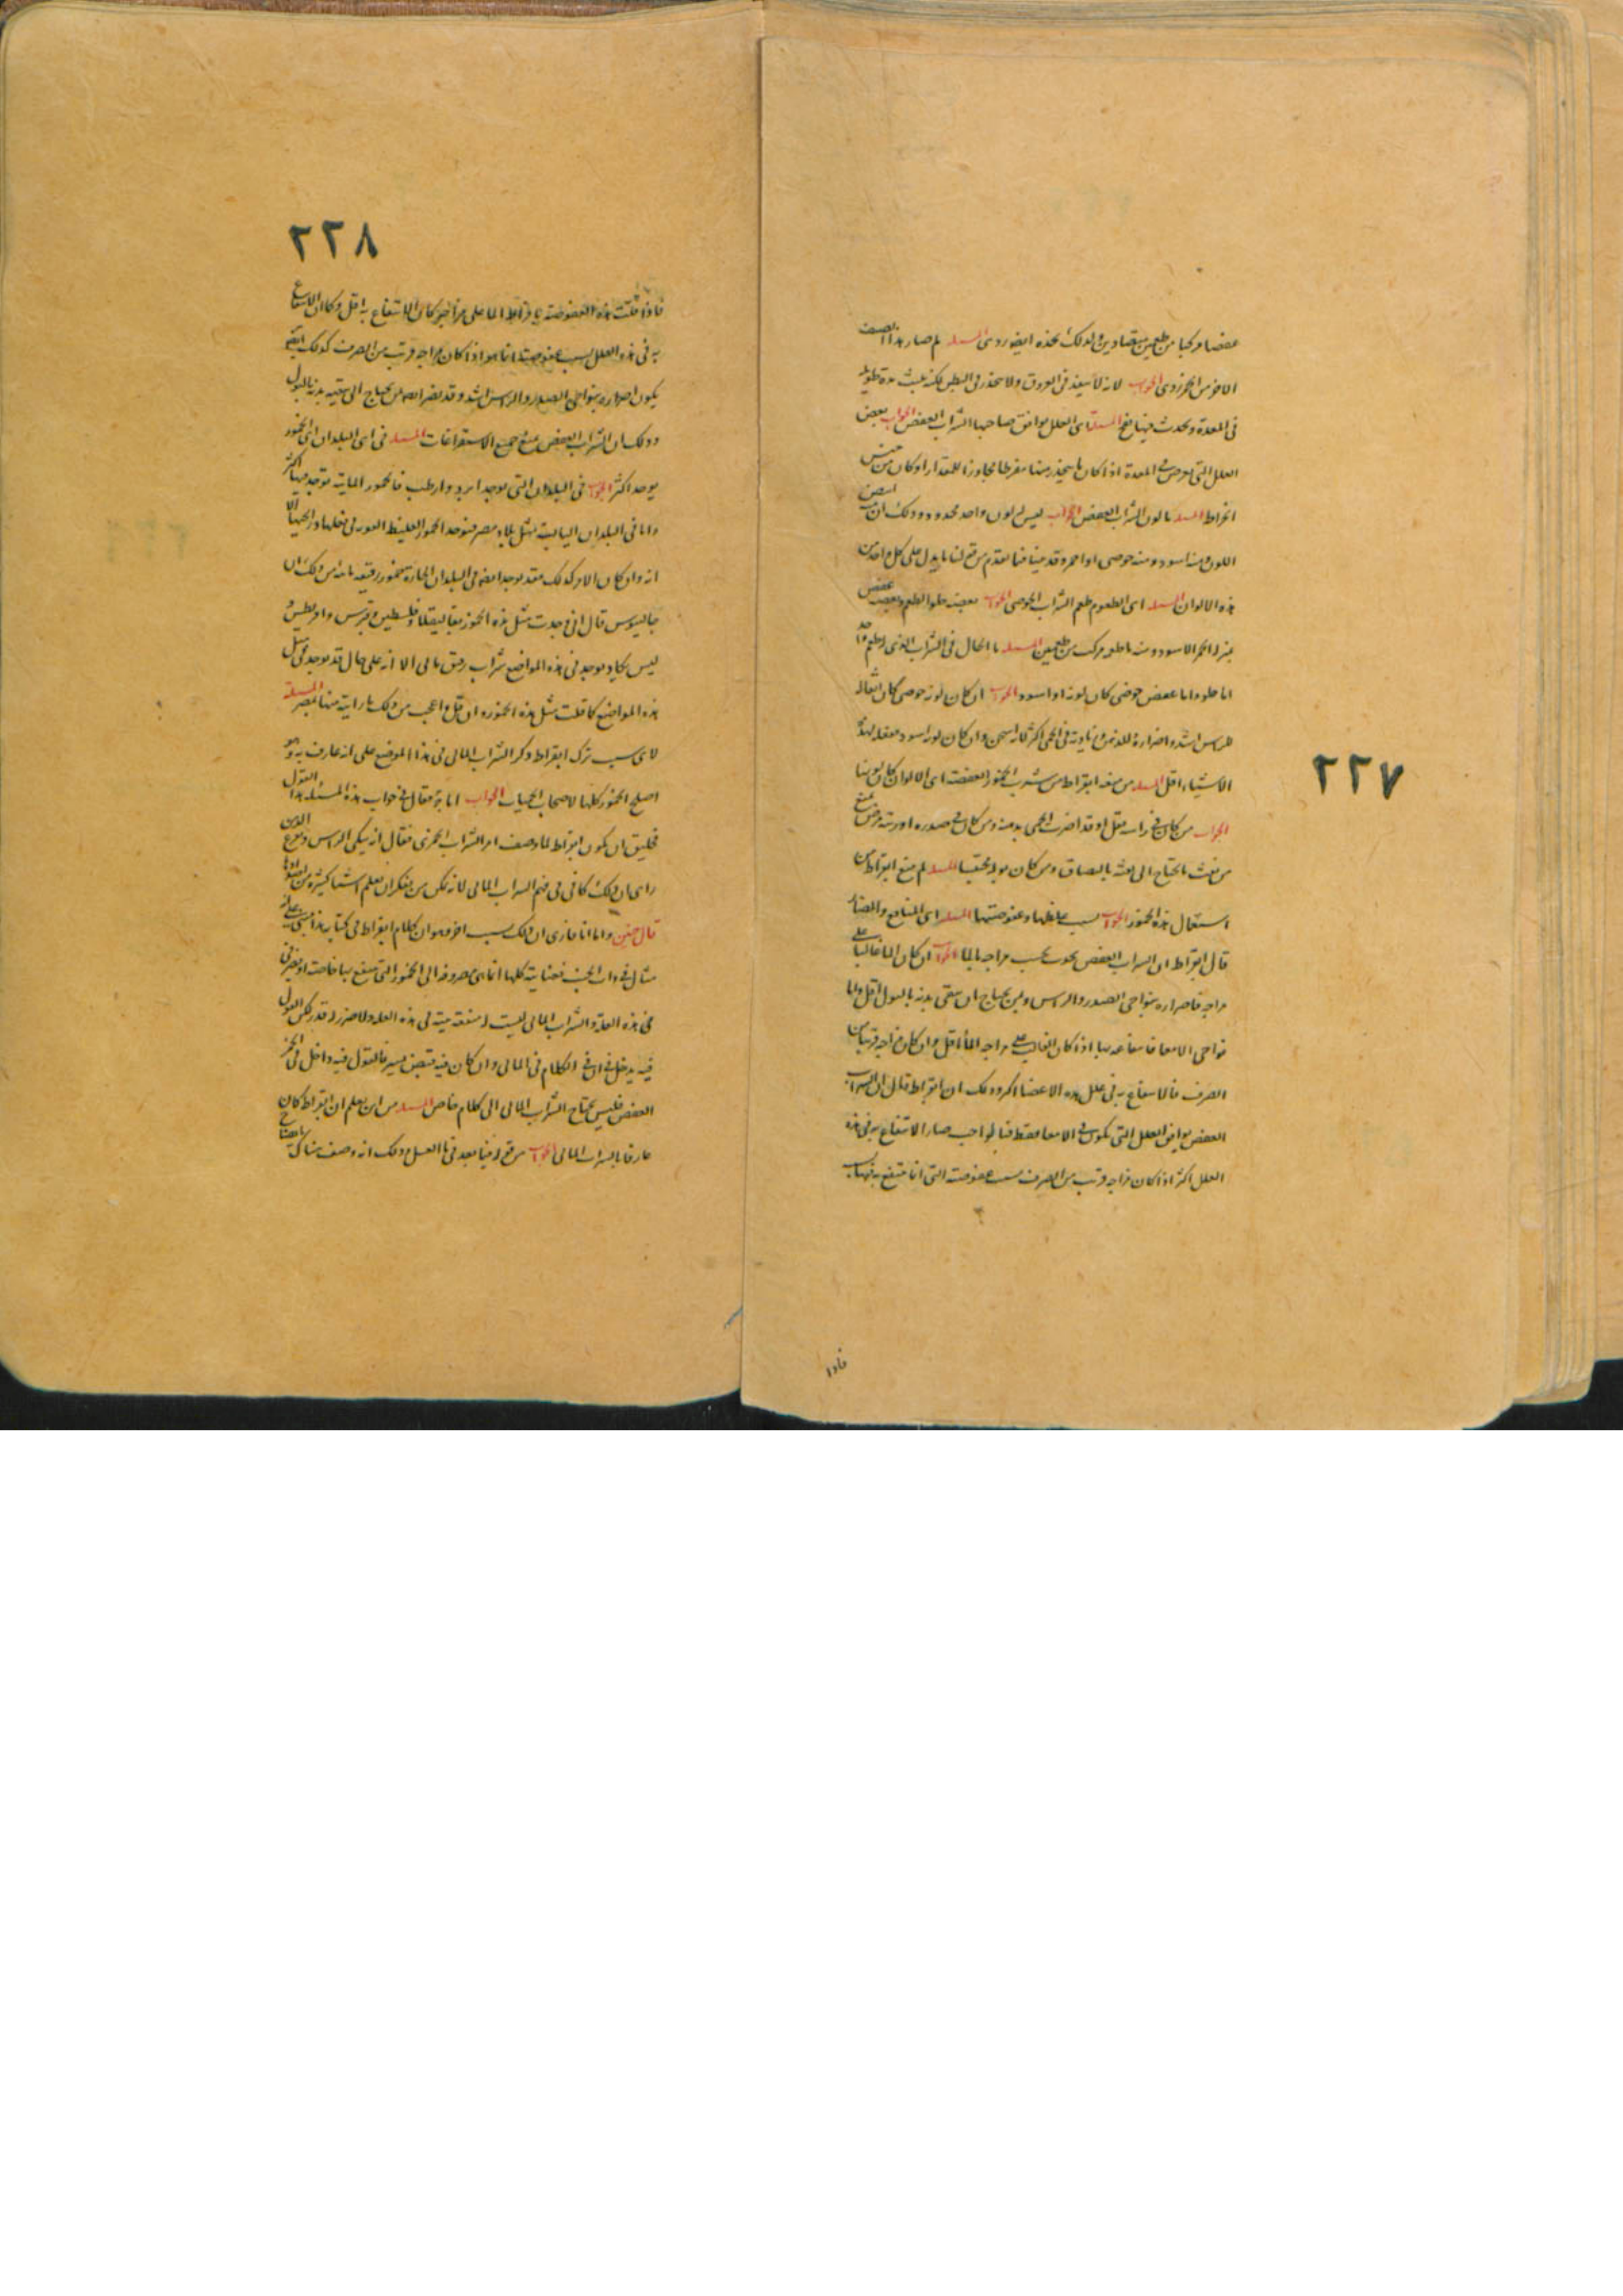 ٢٢٧
عفصا مركبا من طعمين متضادين ولذلك نجده ايضا ردى المسئلة لم صار هذا الصنف
الاخر من الخمر ردى الجواب لانه لا ينفذ فى العروق ولا ينحدر فى البطن لكنه يلبث مدة طويلة
فى المعدة ويحدث فيها نفخ المسئلة اى العلل يوافق صاحبها الشراب العفص الجواب بعض
العلل التى تعرض فى المعدة اذا كان ما ينحدر منها مفرطا مجاوزا للمقدار او كان من جنس
اخراط المسئلة ما لون الشراب العفص الجواب ليس له لون واحد محدود وذلك ان
اللون منه اسود ومنه خوصى او احمر وقد بينا فيما تقدم من قولنا ما يدل على كل واحد من
هذه الالوان المسئلة اى الطعوم طعم الشراب الخوصى الجواب بعضه حلو الطعم وبعضه عفص
بمنزلة الخمر الاسود ومنه ما طعمه مركب من طعمين المسئلة ما الحال فى الشراب الذى طعمه
اما حلو واما عفص خوصى كان لونه او اسود الجواب ان كان لونه خوصى كان اثقاله
للراس اشد واضراره للذهن وزيادته فى الحمى اكثر لانه اسخن وان كان لونه اسود ففعله لهذه
الاشياء اقل المسئلة من منعه ابقراط من شرب الخمور العفصة اى الالوان كان لونها
الجواب من كان فى راسه ثقل او قد اضرت الحمى بذهنه ومن كان فى صدره او رئته مرض يمنع
من نفث ما يحتاج الى نفثه بالبصاق ومن كان بوله محتبسا المسئلة لم منع ابقراط من
استعمال هذه الخمور الجواب لسبب غلظها وعفوصتها المسئلة اى المنافع والمضار
قال ابقراط ان الشراب العفص يحدث بحسب مزاجه بالماء الجواب ان كان الماء غالبا على
مزاجه فاضراره بنواحى الصدر والراس وبمن يحتاج ان ينقى بدنه بالبول اقل واما
نواحى الامعا فانتفاعه بها اذا كان الغالب على مزاجه الماء اقل وان كان مزاجه قريبا من
الصرف فالانتفاع به فى علل هذه الاعضا اكثر وذلك ان ابقراط قال ان الشراب
العفص يوافق العلل التى تكون فى الامعا فقط فبالواجب صار الانتفاع به فى هذه
العلل اكثر اذا كان مزاجه قريب من الصرف بسبب عفوصته التى انما ينتفع به فيها
فاذا
٢٢٨
فاذا قلت هذه العفوصة بافراط الماء على مزاجه كان الانتفاع به اقل وكان الانتفاع
به فى هذه العلل بسبب عفوصته انما هو اذا كان مزاجه قريب من الصرف كذلك ايضا
يكون اضراره بنواحى الصدر والراس اشد وقد يضر ايضا من يحتاج الى تنقية بدنه بالبول
وذلك ان الشراب العفص يمنع جميع الاستفراغات المسئلة فى اى البلدان اى الخمور
يوجد اكثر الجواب فى البلدان التى يوجد ابرد وارطب فالخمور المائية توجد فيها اكثر
واما فى البلدان اليابسة مثل بلاد مصر فيوجد الخمور الغليظة القوية فى فعلها ورائحتها الا
انه وان كان الامر كذلك فقد يوجد ايضا فى البلدان الحارة خمور رقيقة مائية من ذلك ان
جالينوس قال انى وجدت مثل هذه الخمور بقاليقلا وفلسطين وقبرس وامر بطيس
ليس يكاد يوجد فى هذه المواضع شراب رقيق مائى الا انه على حال قد يوجد فى مثل
هذه المواضع كما قلت مثل هذه الخمور وان قل واعجب من ذلك ما رايته منها بمصر المسئلة
لاى سبب ترك ابقراط ذكر الشراب المائى فى هذا الموضع على انه عارف به وهو
اصلح الخمور كلها لاصحاب الحميات الجواب اما يقال فى جواب هذه المسئلة هذا القول
فخليق ان يكون ابقراط لما وصف امر الشراب الخمرى فقال انه ينكى الراس ويوجع الذهن
راى ان ذلك كافى فى فهم الشراب المائى لانه يمكن من يفكر ان يعلم اشيا كثيرة من اضدادها
قال حنين واما انا فارى ان ذلك سبب اخر وهو ان كلام ابقراط فى كتابه هذا مبنى على انه
مثال فى ذات الجنب فعنايته كلها انما هى مصروفة الى الخمور التى ينتفع بها خاصة او يضر فى
فى هذه العلة والشراب المائى ليست له منفعة بينة فى هذه العلة ولا ضرر له قدر لكن القول
فيه يدخل فى الكلام فى المائى وان كان فيه قبض يسير فالقول فيه داخل فى الخمر
العفص فليس يحتاج الشراب المائى الى كلام خاص المسئلة من اين نعلم ان ابقراط كان
عارفا بالشراب المائى الجواب من قوله فيما بعد فى ماء العسل وذلك انه وصف هناك